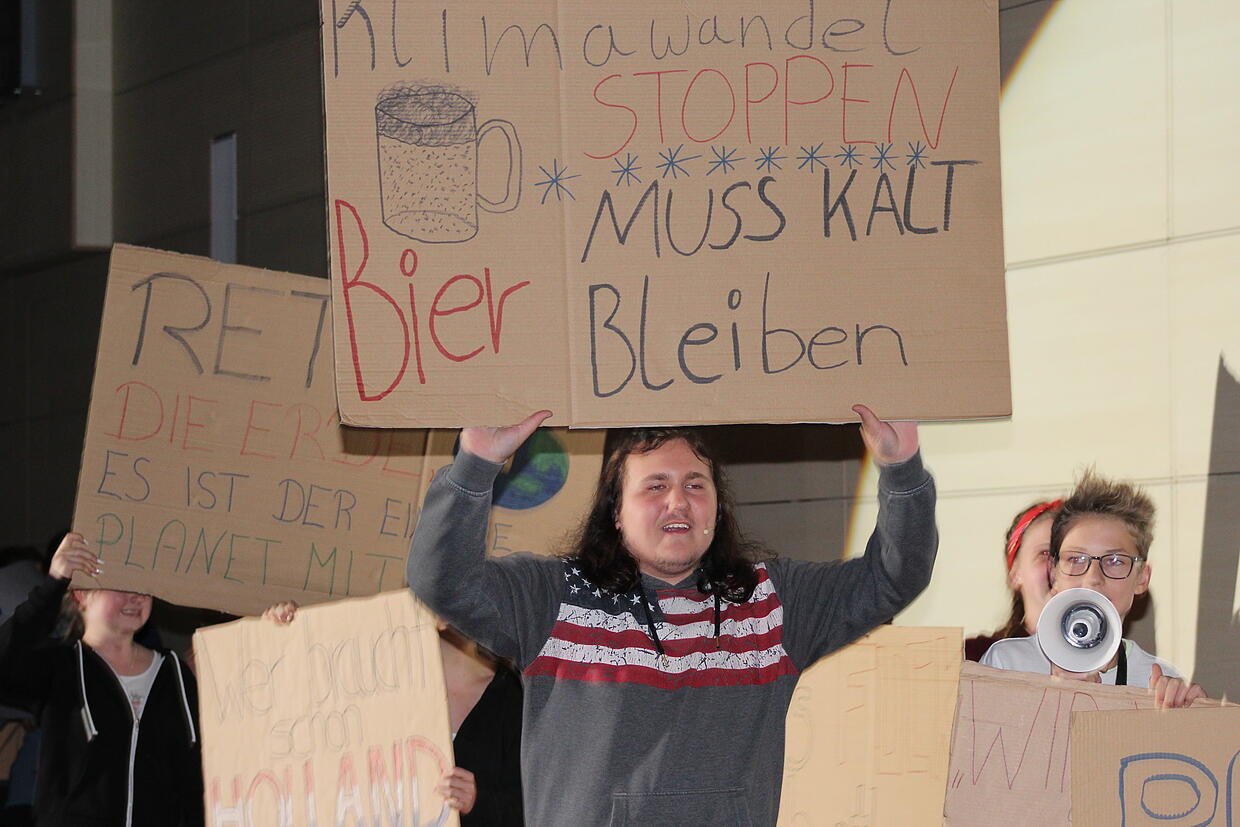 Klimawandel
STOPPEN
Bier
MUSS KALT
Bleiben
RET
DIE ERDE
ES IST DER
PLANET MIT
Wer braucht
schon
HOLLAND
"WIR